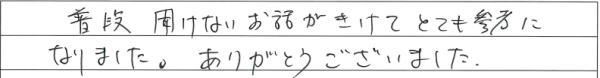 普段 聞けないお話がきけて とても参考に
なりました。ありがとうございました.